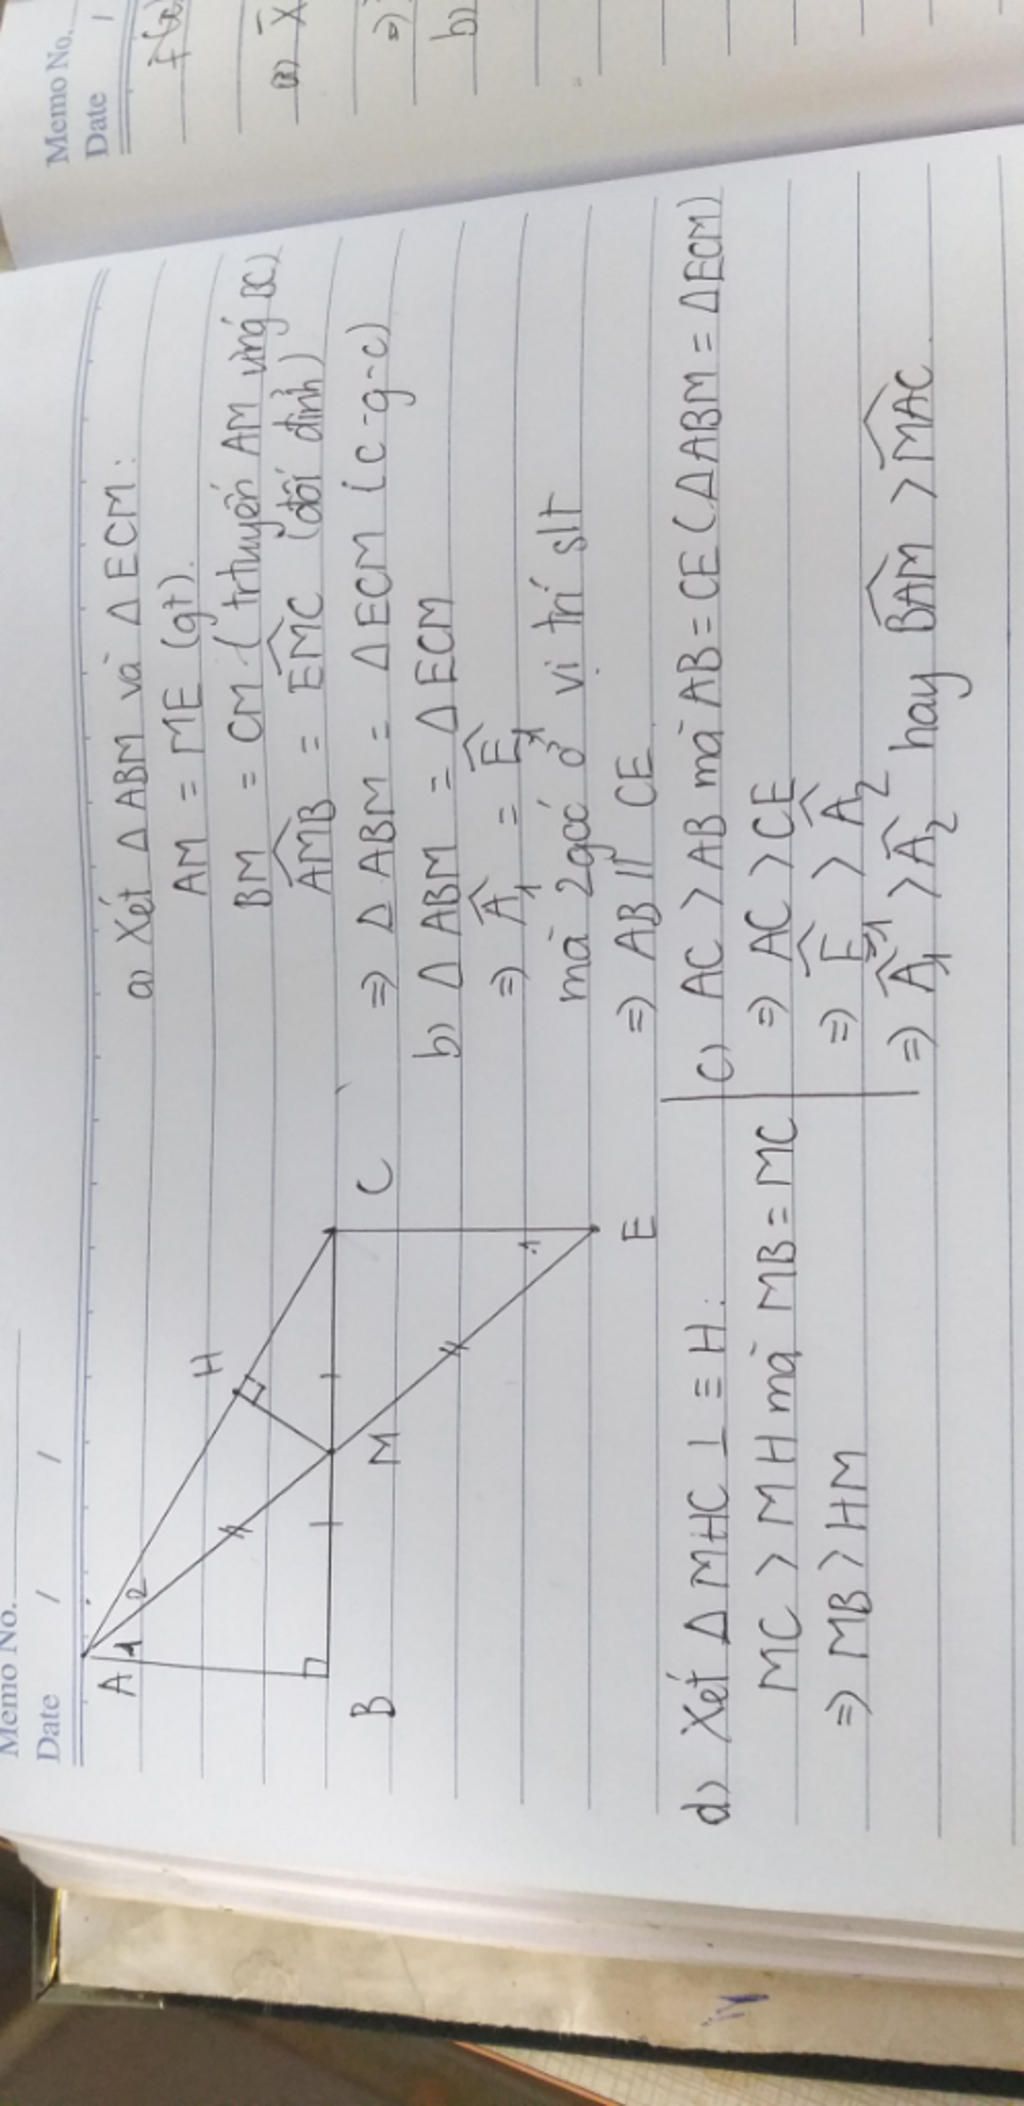 Memo No.
Date / /
A
1
2
H
B
M
C
1
E
a) Xét ΔABM và ΔECM:
AM = ME (gt).
BM = CM (trtuyến AM ứng BC)
\widehat{AMB} = \widehat{EMC} (đối đỉnh)
⇒ ΔABM = ΔECM (c-g-c)
b) ΔABM = ΔECM
⇒ \widehat{A}₁ = \widehat{E}₁
mà 2góc ở vị trí slt
⇒ AB // CE
c) AC > AB mà AB = CE (ΔABM = ΔECM)
⇒ AC > CE
⇒ \widehat{E}₁ > \widehat{A}₂
⇒ \widehat{A}₁ > \widehat{A}₂ hay \widehat{BAM} > \widehat{MAC}.
d) Xét ΔMHC ⊥ ≡ H:
MC > MH mà MB = MC
⇒ MB > HM
Memo No.
Date /
b)